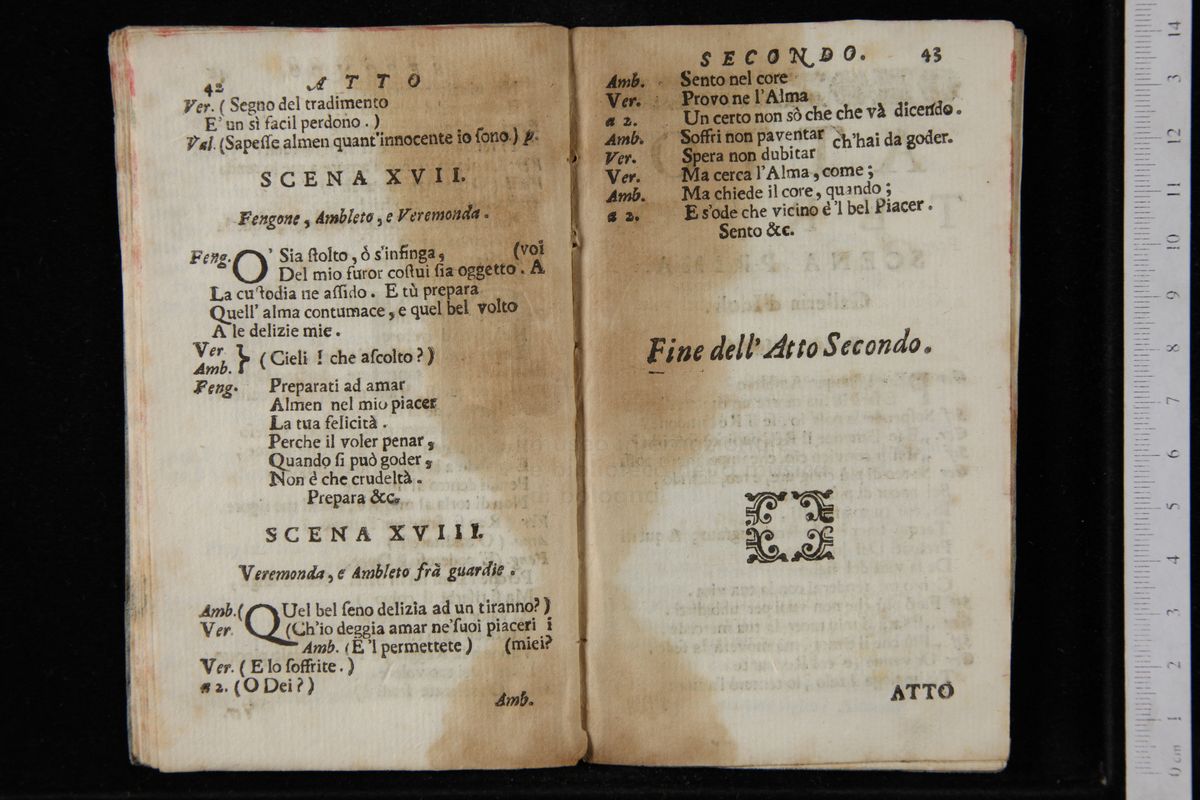 42 ATTO
Ver. ( Segno del tradimento
E' un sì facil perdono . )
Val. (Sapeſſe almen quant'innocente io ſono ) p.
SCENA XVII.
Fengone , Ambleto , e Veremonda .
Feng. O' Sia ſtolto , ò s'infinga , (voi
Del mio furor coſtui ſia oggetto . A
La cuſtodia ne aſſido . E tù prepara
Quell' alma contumace , e quel bel volto
A le delizie mie .
Ver.
Amb. } (Cieli ! che aſcolto ? )
Feng. Preparati ad amar
Almen nel mio piacer
La tua felicità .
Perche il voler penar ,
Quando ſi può goder ,
Non è che crudeltà .
Prepara &c.
SCENA XVIII.
Veremonda , e Ambleto frà guardie .
Amb. ( QUel bel ſeno delizia ad un tiranno? )
Ver. (Ch'io deggia amar ne'ſuoi piaceri i
Amb. ( E 'l permettete ) (miei?
Ver. ( E lo ſoffrite . )
a 2. ( O Dei ? )
Amb.
SECONDO. 43
Amb. Sento nel core
Ver. Provo ne l'Alma
a 2. Un certo non sò che che và dicendo.
Amb. Soffri non paventar
ch'hai da goder.
Ver. Spera non dubitar
Ver. Ma cerca l'Alma , come ;
Amb. Ma chiede il core , quando ;
a 2. E s'ode che vicino è 'l bel Piacer .
Sento &c.
Fine dell' Atto Secondo .
ATTO